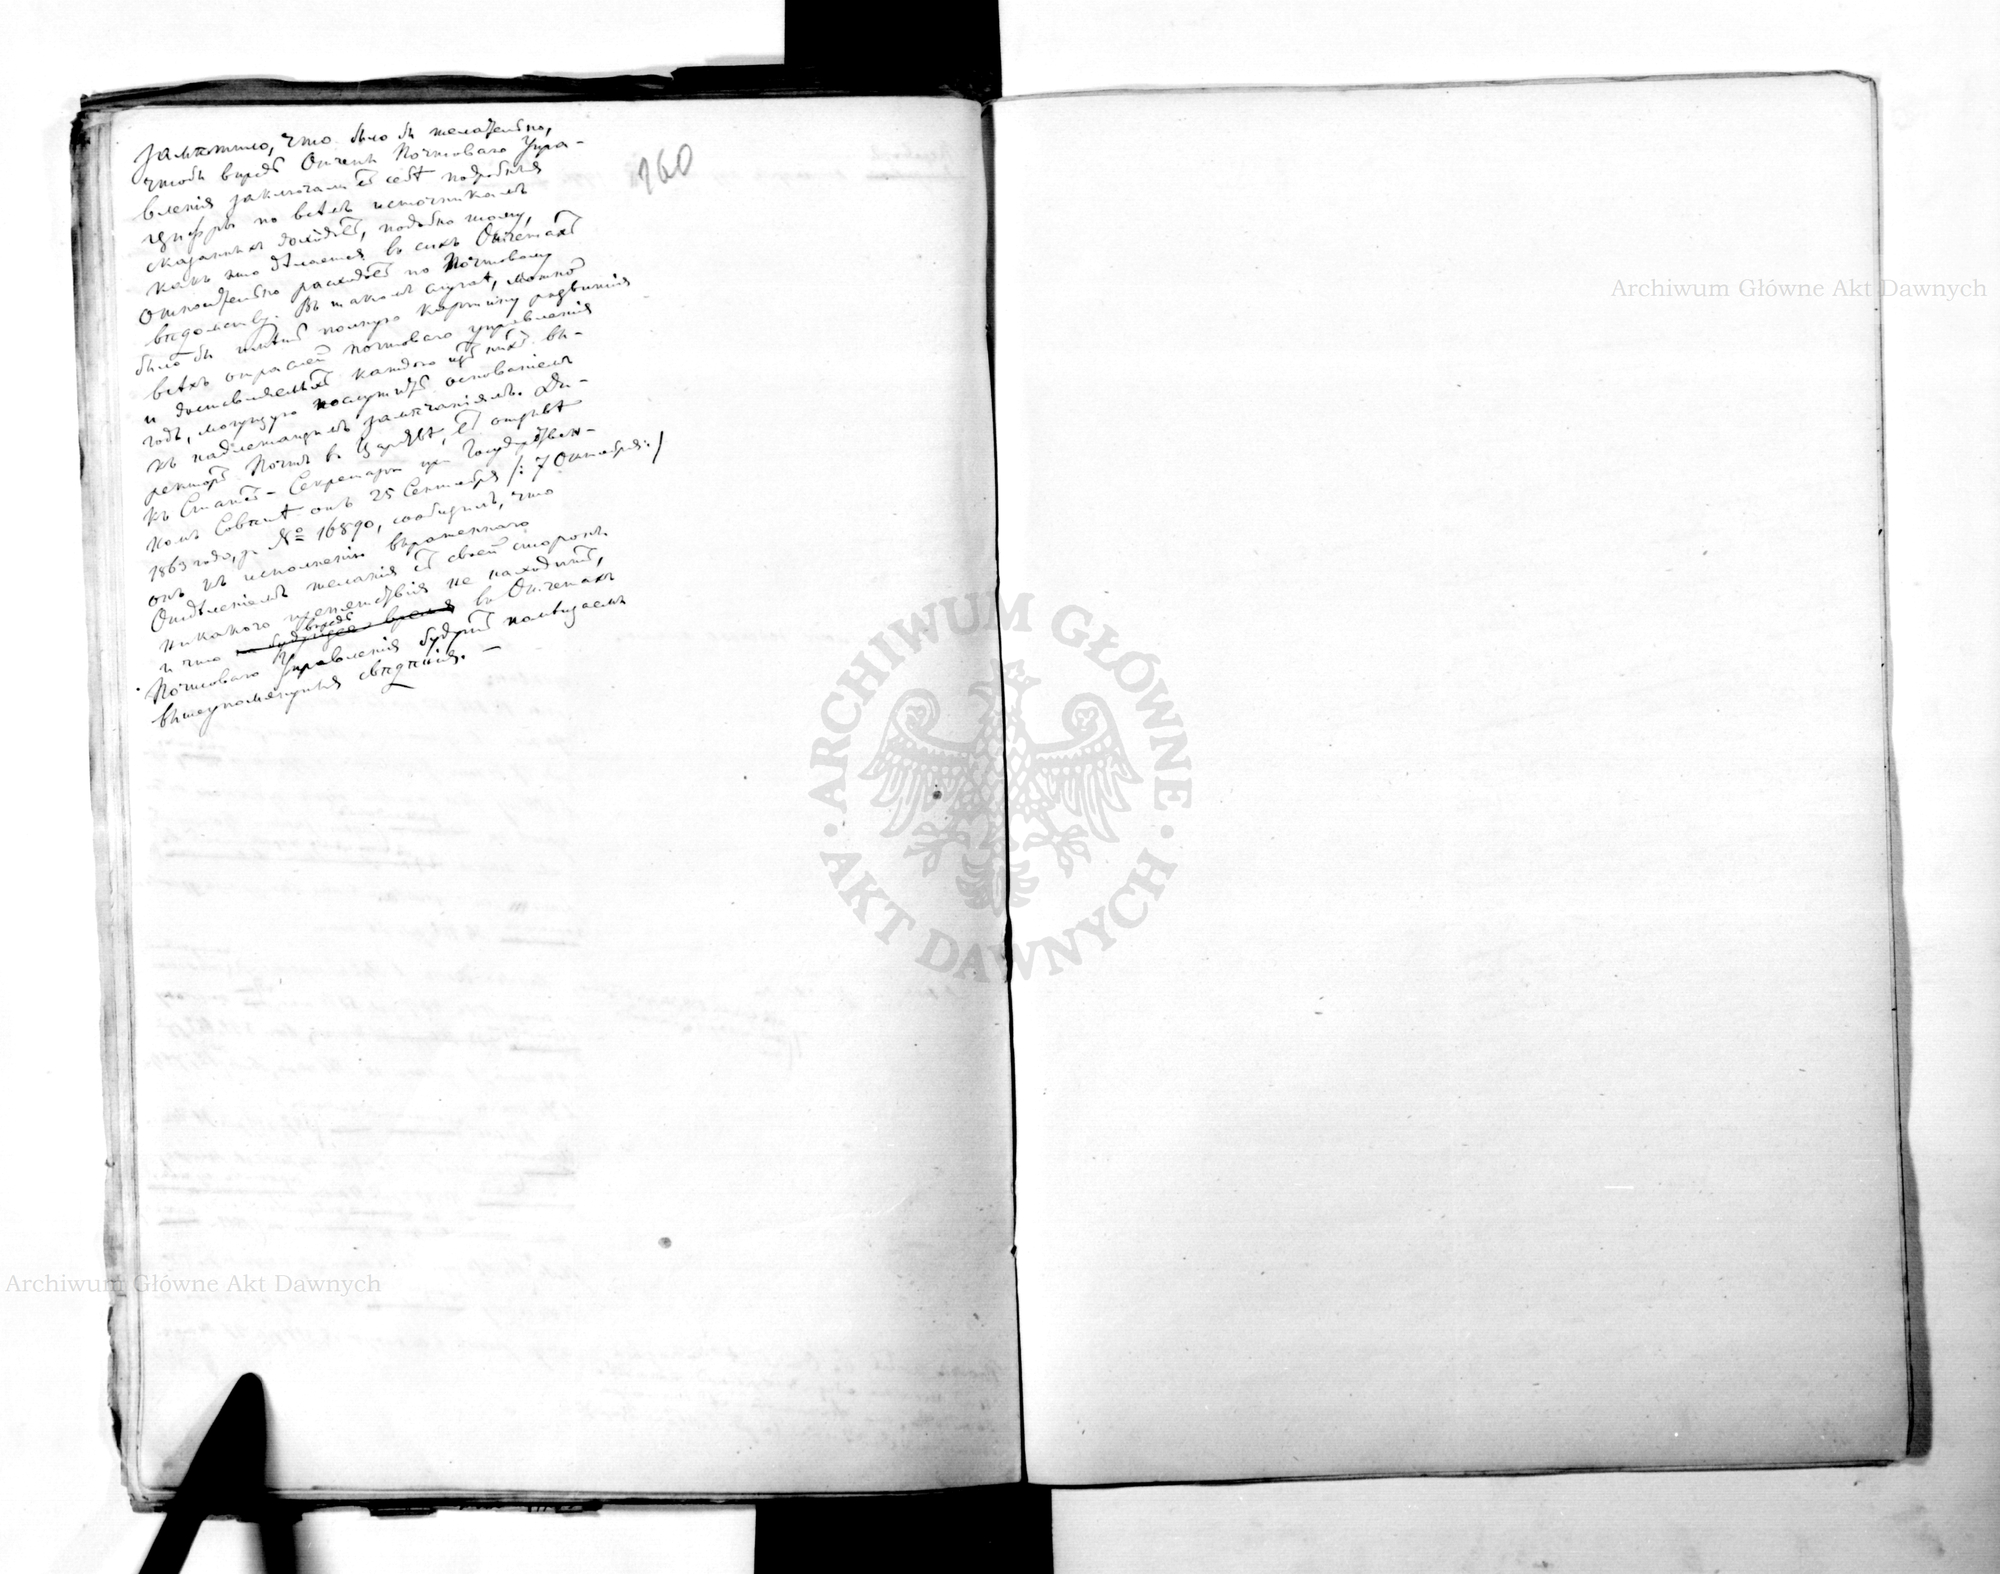 160
замѣтило, что было бы желательно,
чтобы впредь Отчеты Почтоваго Упра-
вленія заключали въ себѣ подробныя
цифры по всѣмъ источникамъ
сказанныхъ доходовъ, подобно тому,
какъ это дѣлается въ сихъ Отчетахъ
относительно расходовъ по Почтовому
вѣдомству. Въ такомъ случаѣ, можно
было бы имѣть полную картину развитія
всѣхъ отраслей почтоваго управленія
и доставляемыхъ каждою изъ нихъ вы-
годъ, могущую послужить основаніемъ
къ надлежащимъ замѣчаніямъ. Ди-
ректоръ Почтъ въ Царствѣ, въ отзывѣ
къ Статсъ-Секретарю при Государствен-
номъ Совѣтѣ отъ 25 Сентября /: 7 Октября :/
1863 года, за № 16890, сообщилъ, что
онъ къ исполненію выраженнаго
Отдѣленіемъ желанія съ своей стороны
никакого препятствія не находитъ,
и что на будущее время впредь въ Отчетахъ
Почтоваго Управленія будутъ помѣщаемы
вышеупомянутыя свѣдѣнія. —
Archiwum Główne Akt Dawnych
ARCHIWUM GŁÓWNE
AKT DAWNYCH
Archiwum Główne Akt Dawnych